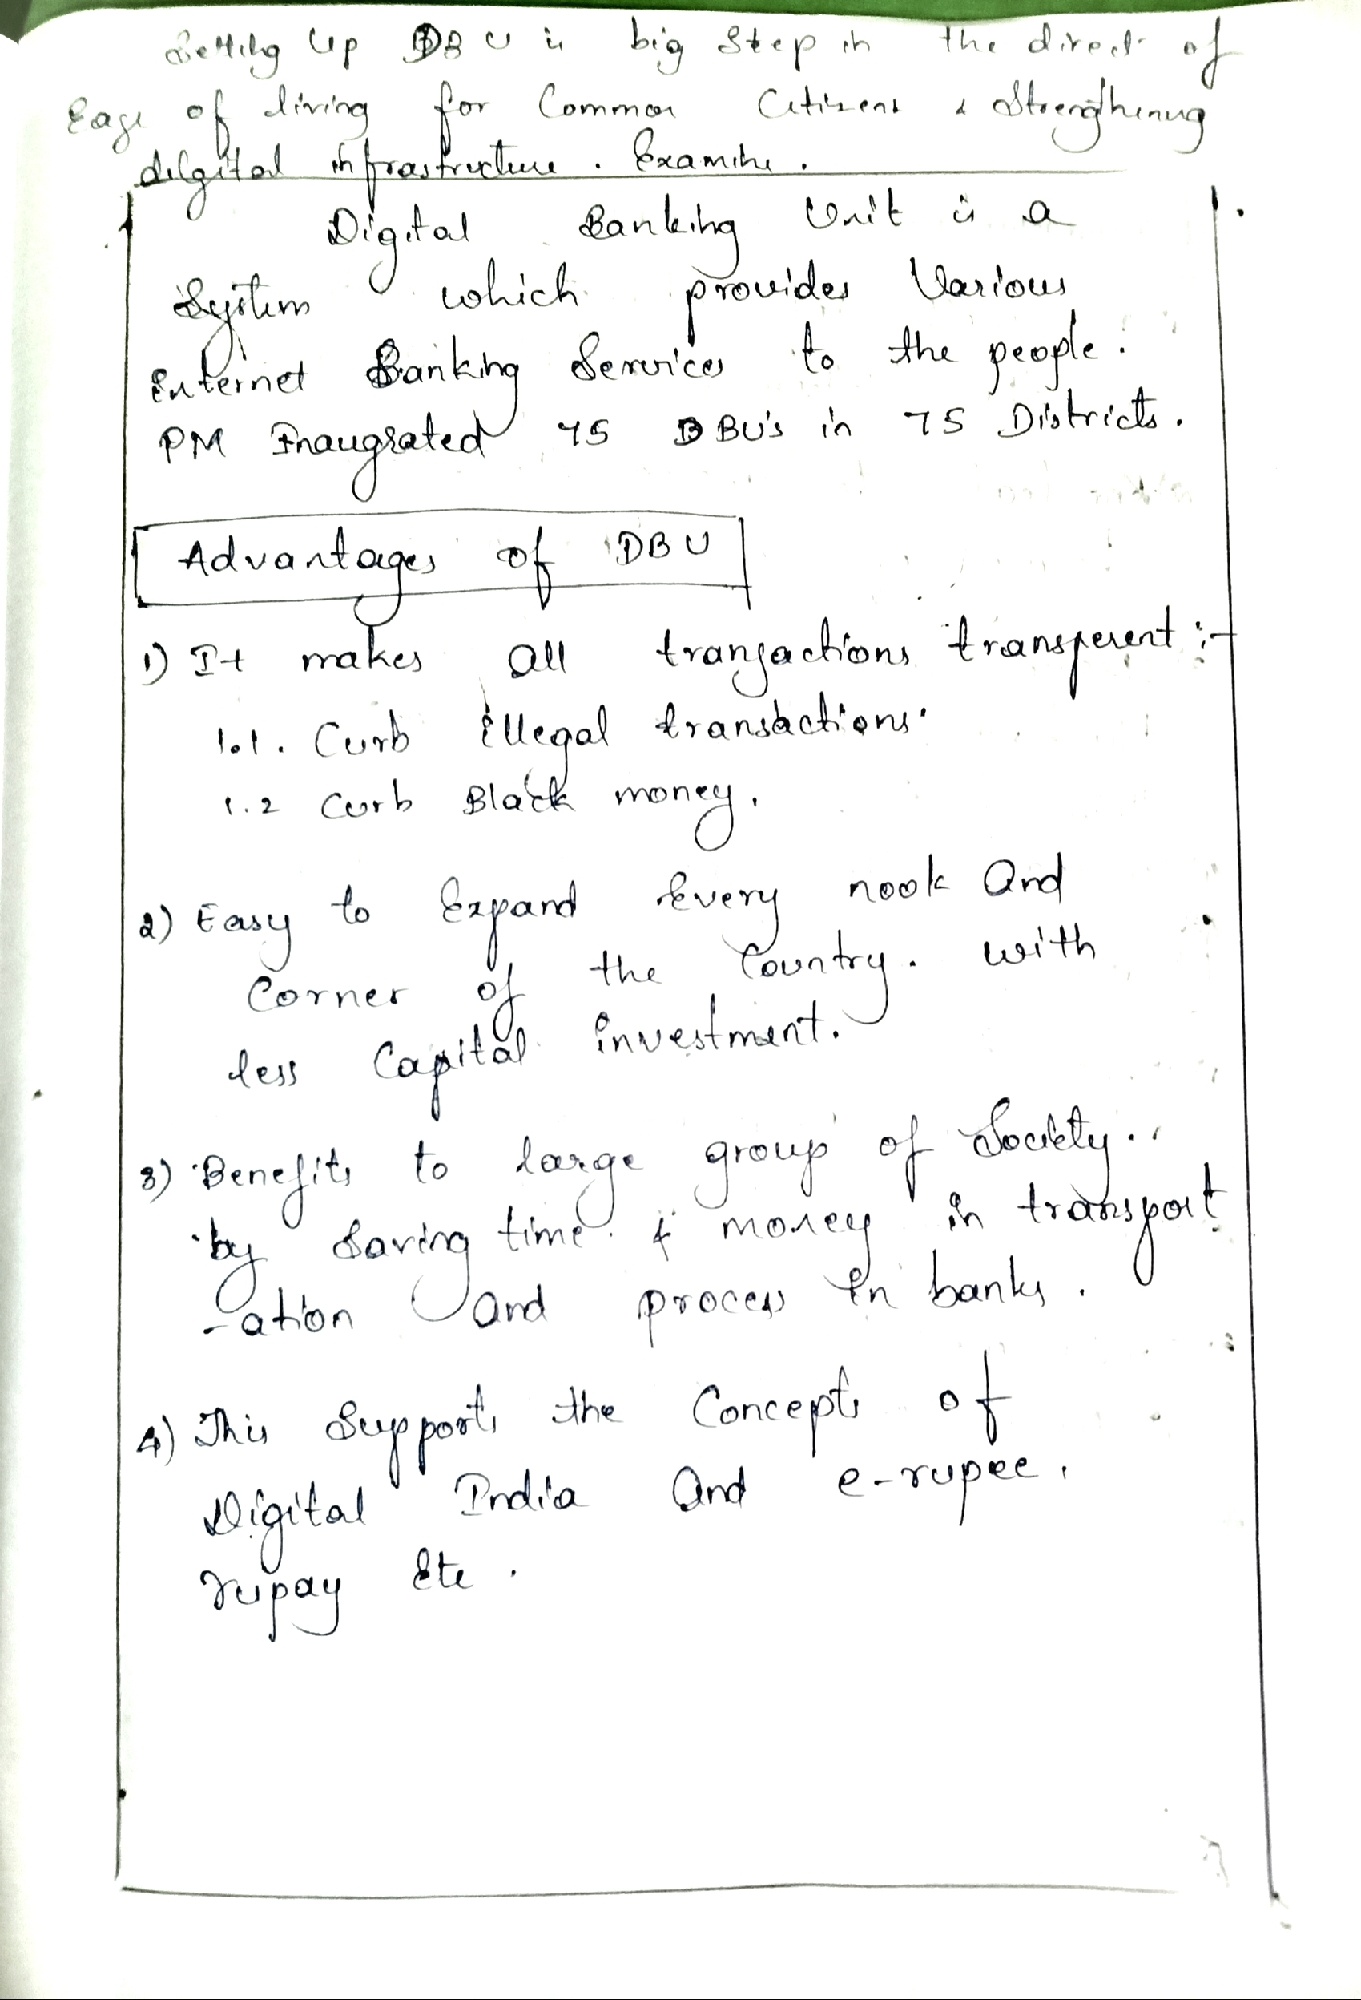 Setting up DBU is big step in the direct of
Ease of living for Common Citizens & Strengthening
digital infrastructure. Examine.
Digital Banking Unit is a
System which provides Various
Internet Banking Services to the people.
PM Inaugrated 75 DBU's in 75 Districts.
Advantages of DBU
1) It makes all transactions transperent :-
1.1. Curb illegal transactions.
1.2 Curb Black money.
2) Easy to Expand Every nook and
Corner of the Country. with
less Capital investment.
3) Benefits to large group of Society..
by Saving time & money in transport
-ation and process in banks.
4) This Supports the Concepts of
Digital India and e-rupee,
rupay Etc.